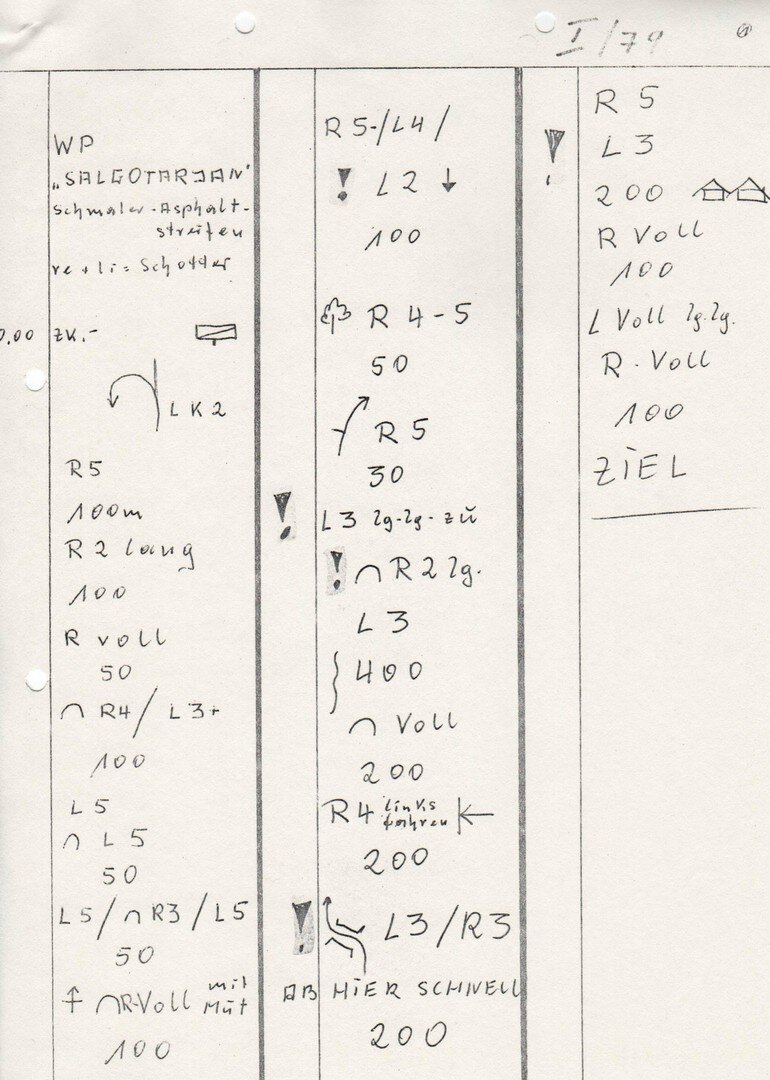 I/79
①
WP
„SALGOTARJAN"
Schmaler-Asphalt-
streifen
re + li = Schotter
0.00 ZK.-
LK2
R5
100m
R2 lang
100
R voll
50
R4/ L3+
100
L5
L5
50
L5/ R3/L5
50
R-Voll mit
Mut
100
R5-/L4/
! L2
100
R 4-5
50
R5
30
! L3 lg-lg-zu
! R2 lg.
L3
400
Voll
200
R4 links
fahren
200
! L3/R3
AB HIER SCHNELL
200
R5
! L3
200
R Voll
100
L Voll lg.lg.
R-Voll
100
ZIEL